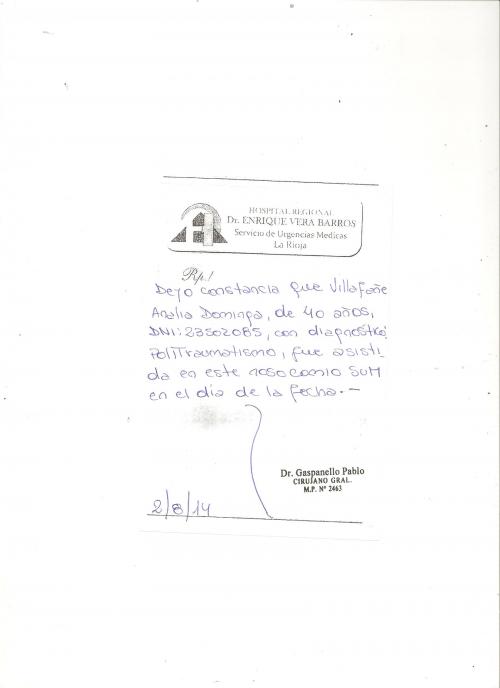 HOSPITAL REGIONAL
Dr. ENRIQUE VERA BARROS
Servicio de Urgencias Medicas
La Rioja
Rp./
Dejo constancia que Villafañe
Analia Dominga, de 40 años,
DNI: 23502085, con diagnostico:
PoliTraumatismo, fue asisti
da en este nosocomio SUM
en el día de la fecha.-
Dr. Gaspanello Pablo
CIRUJANO GRAL.
M.P. Nº 2463
2/8/14